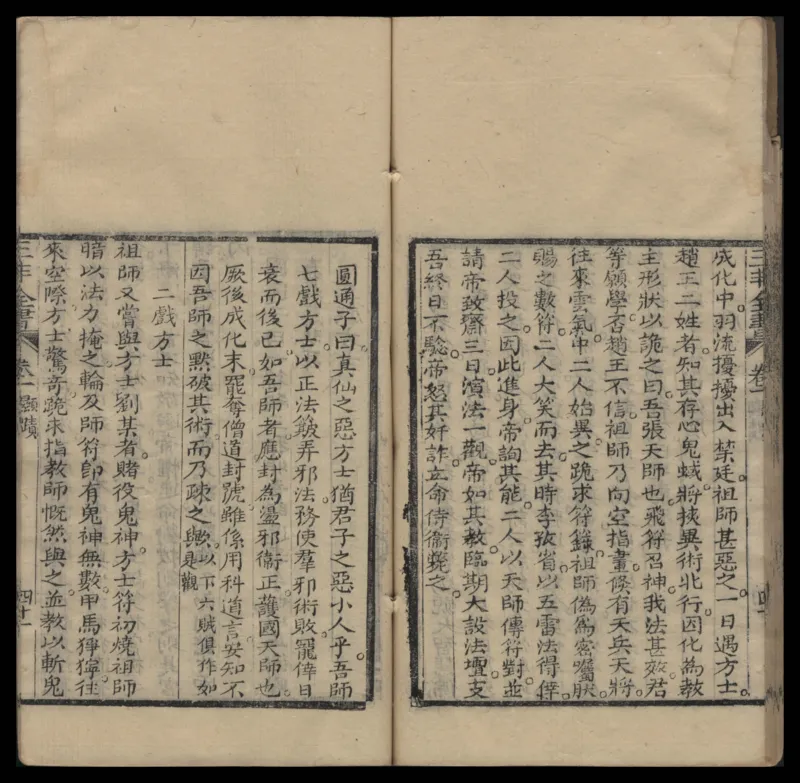 成化中羽流擾擾出入禁廷祖師甚惡之一日遇方士
趙王二姓者知其存心鬼蜮將挾異術北行因化為教
主形狀以詭之曰吾張天師也飛符召神我法甚效君
等願學否趙王不信祖師乃向空指畫倐有天兵天將
往來雲氣中二人始異之跪求符籙祖師偽為密囑朕
賜之數符二人大笑而去其時李孜省以五雷法得倖
二人投之因此進身帝詢其能二人以天師傳符對並
請帝致齋三日演法一觀帝如其教臨期大設法壇支
吾終日不驗帝怒其奸詐立命侍衞斃之
三丰全書
卷一
圓通子曰真仙之惡方士猶君子之惡小人乎吾師
七戲方士以正法簸弄邪法務使羣邪術敗寵倖日
衰而後已如吾師者應封為盪邪衞正護國天師也
厥後成化末罷奪僧道封號雖係用科道言安知不
因吾師之默破其術而乃疎之歟以下六賊俱作如
是觀
二戲方士
祖師又嘗與方士劉某者賭役鬼神方士符初燒祖師
暗以法力掩之輪及師符即有鬼神無數甲馬獰獰往
來空際方士驚奇跪求指教師慨然與之並教以斬鬼
三丰全書
卷一
顯蹟